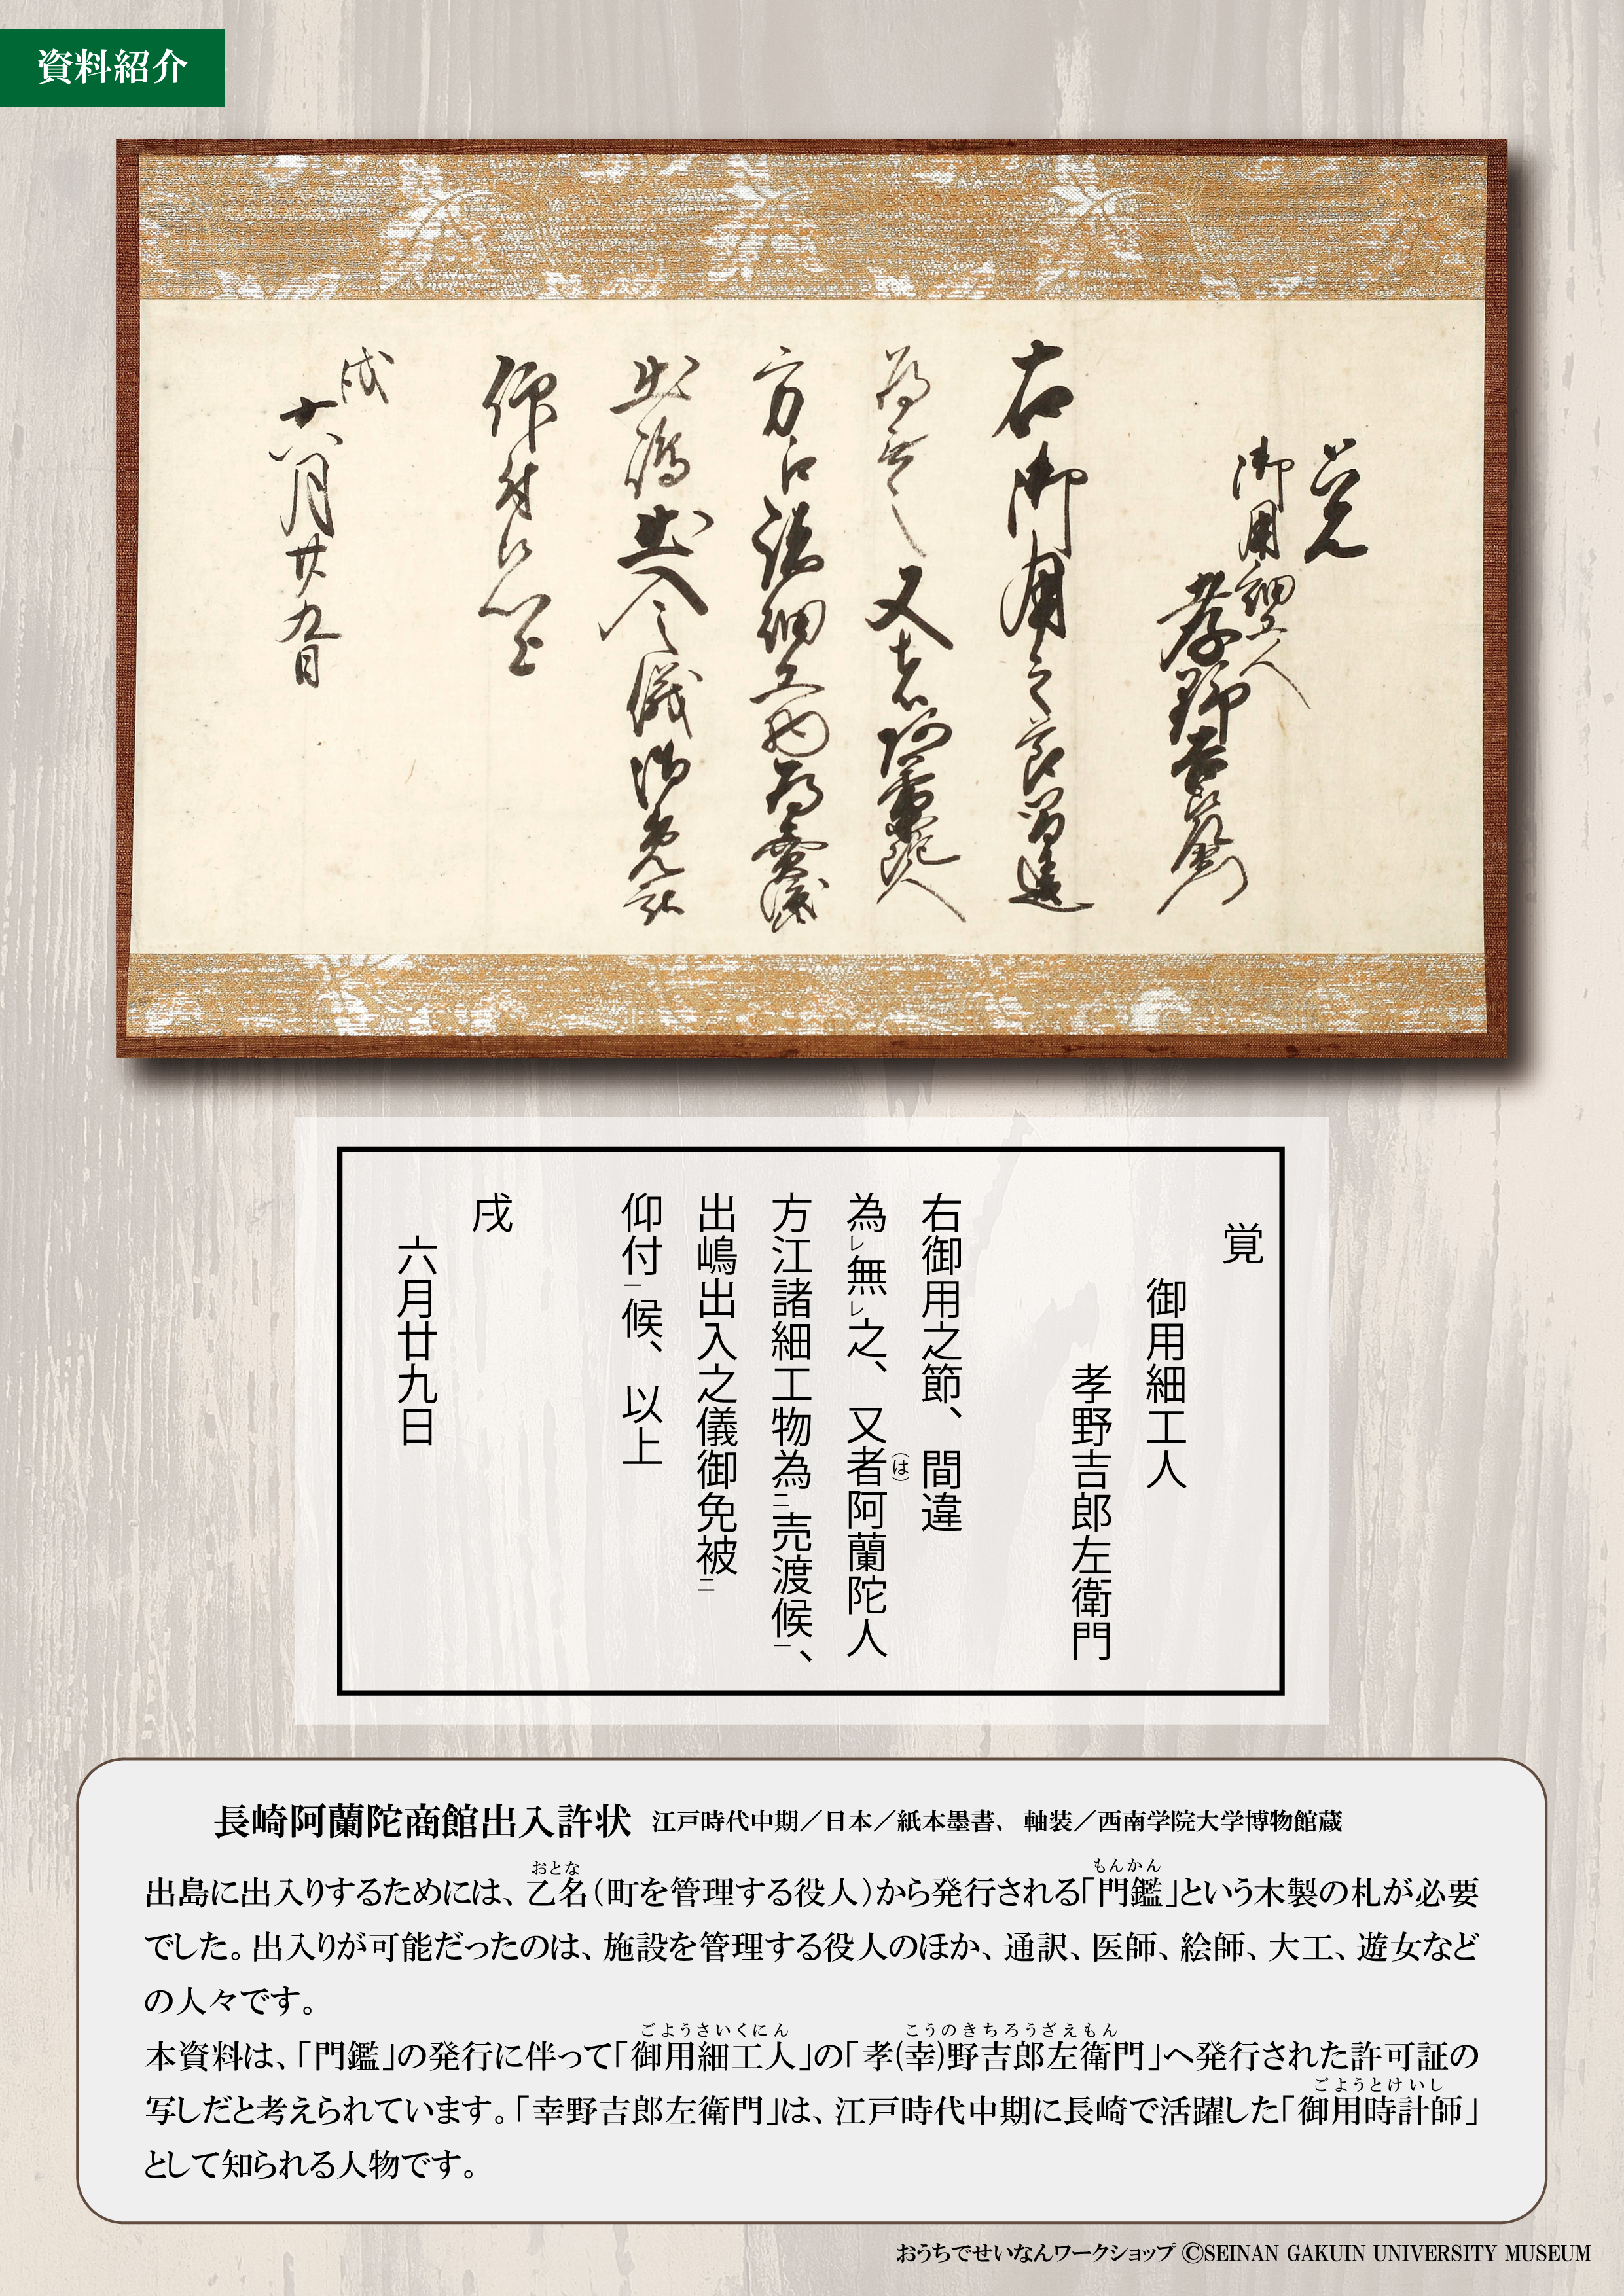 資料紹介
覚
御用細工人
孝野吉郎左衛門
右御用之節間違
為無之又者阿蘭陀人
方江諸細工物為売渡候
出嶋出入之儀御免被
仰付候以上
戌
六月廿九日
覚
御用細工人
孝野吉郎左衛門
右御用之節、間違
為レ無レ之、又者(は)阿蘭陀人
方江諸細工物為二売渡候一、
出嶋出入之儀御免被二
仰付一候、以上
戌
六月廿九日
長崎阿蘭陀商館出入許状 江戸時代中期／日本／紙本墨書、軸装／西南学院大学博物館蔵
おとな もんかん
出島に出入りするためには、乙名（町を管理する役人）から発行される「門鑑」という木製の札が必要
でした。出入りが可能だったのは、施設を管理する役人のほか、通訳、医師、絵師、大工、遊女など
の人々です。
ごようさいくにん こうのきちろうざえもん
本資料は、「門鑑」の発行に伴って「御用細工人」の「孝(幸)野吉郎左衛門」へ発行された許可証の
ごようとけいし
写しだと考えられています。「幸野吉郎左衛門」は、江戸時代中期に長崎で活躍した「御用時計師」
として知られる人物です。
おうちでせいなんワークショップ ©SEINAN GAKUIN UNIVERSITY MUSEUM